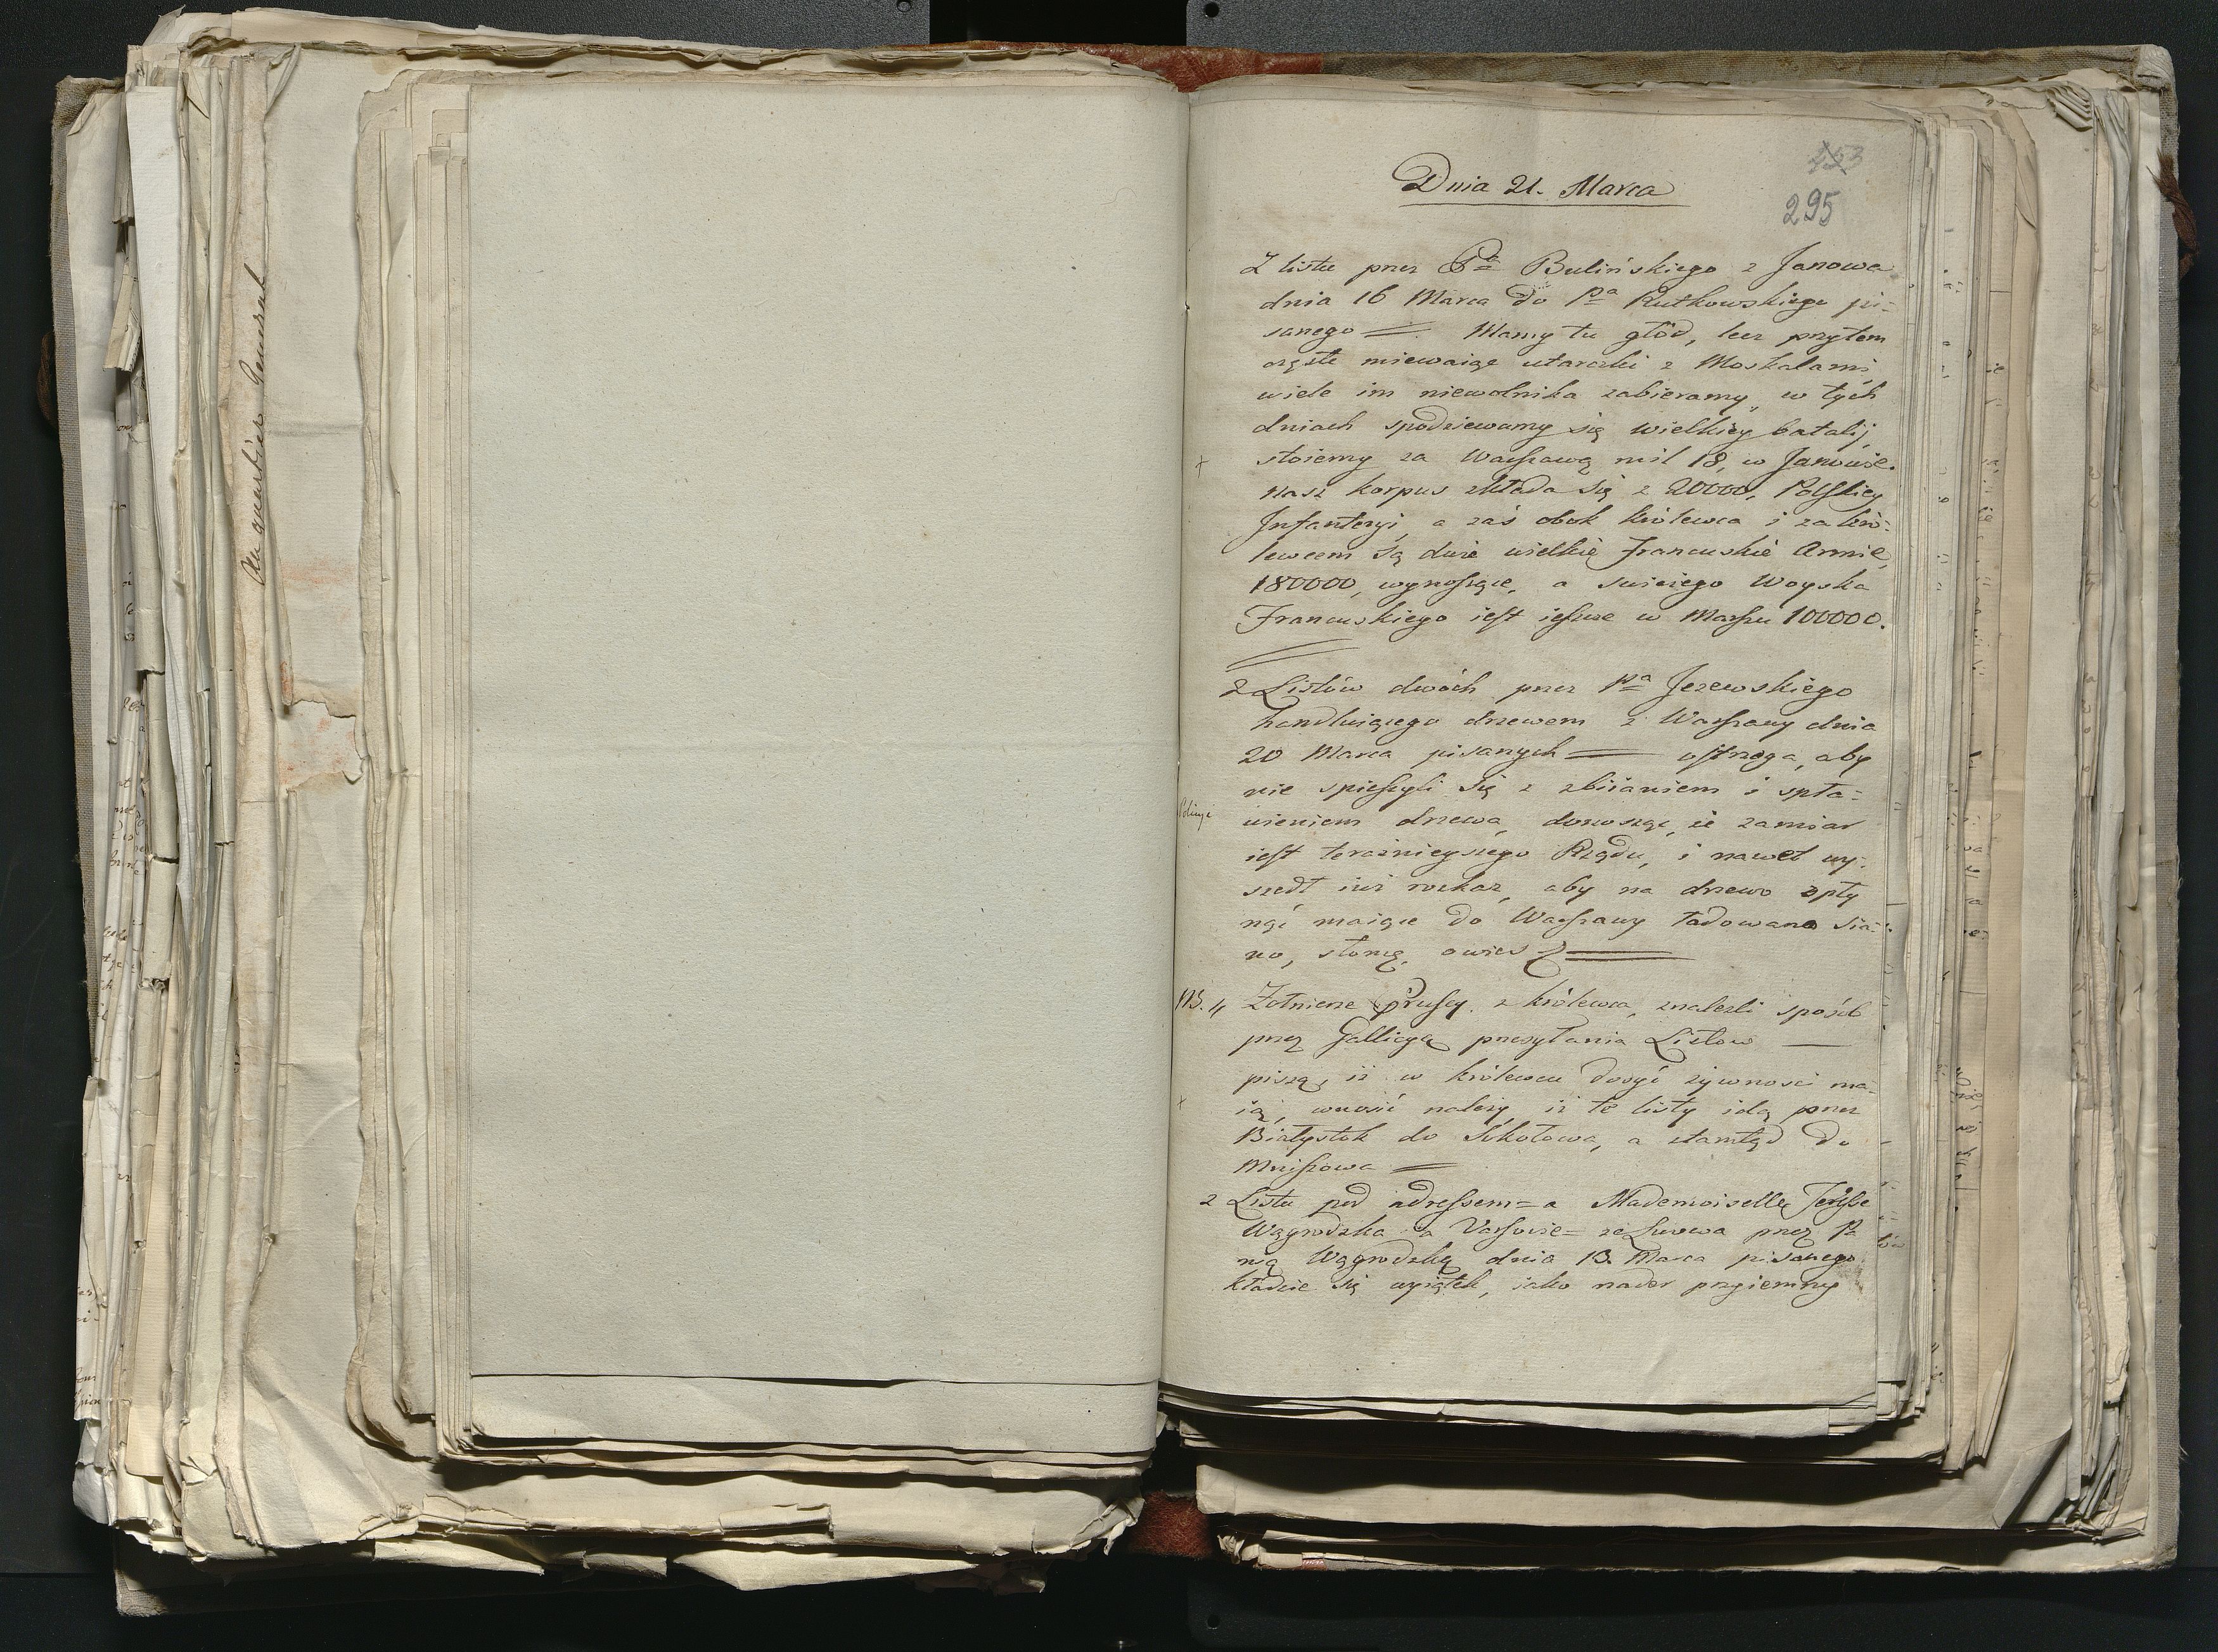 Au quartier General
253
295
Dnia 21. Marca
Z listu przez Pa Bulińskiego z Janowa
dnia 16 Marca do Pa Rutkowskiego pi=
sanego = Mamy tu głód, lecz przytem
częste miewaiąc utarczki z Moskalami,
wiele im niewolnika zabieramy, w tych
dniach spodziewamy się wielkiey batalij,
+ stoiemy za Warszawą mil 18, w Janowie.
nasz korpus składa się z 20000, Polskiey
Infanteryi, a zaś obok królewca i za kró=
lewcem są dwie wielkie francuskie Armie,
180000, wynoszące, a swieżego Woyska
Francuskiego iest ieszcze w Marszu 100000.
Z Listów dwóch przez Pa Jezewskiego
handluiącego drzewem z Warszawy dnia
20 Marca pisanych = ostrzega, aby
nie spieszyli się z zbiianiem i spła=
wieniem drzewa, donosząc, że zamiar
iest teraznieyszego Rządu, i nawet wy=
szedł iuż rozkaz, aby na drzewo płynąć
maiące do Warszawy ładowano sia=
no, słomę, owies
NB. Zołnierze Pruscy z królewca, znalezli sposób
przez Gallicyą przesyłania Listow —
piszą, iż w królewcu dosyć zywnosci ma=
+ ią, wnosić należy iż te listy idą przez
Białystok do Sokołowa, a ztamtąd do
Mniszowa =
Z Listu pod adressem = a Mademoiselle
Wągrodzka a Varsovie = ze Lwowa przez Pa
nią Wągrodzką dnia 13. Marca pisanego
kładzie się wyiątek, jako nader przyiemny